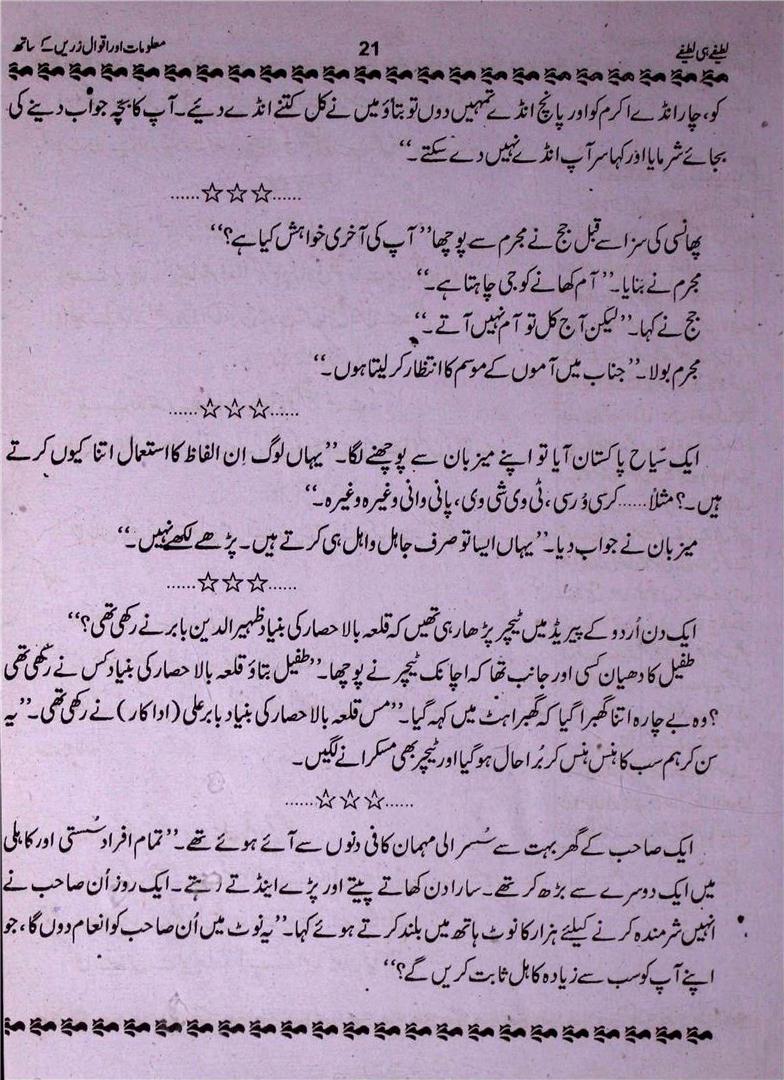 لطیفے ہی لطیفے 21 معلومات اور اقوال زریں کے ساتھ
کو، چار انڈے اکرم کو اور پانچ انڈے تمہیں دوں تو بتاؤ میں نے کل کتنے انڈے دئیے۔ آپ کا بچہ جواب دینے کی
بجائے شرمایا اور کہا سر آپ انڈے نہیں دے سکتے۔‘‘
......☆☆☆......
پھانسی کی سزا سے قبل جج نے مجرم سے پوچھا ’’آپ کی آخری خواہش کیا ہے؟‘‘
مجرم نے بتایا۔ ’’آم کھانے کو جی چاہتا ہے۔‘‘
جج نے کہا۔ ’’لیکن آج کل تو آم نہیں آتے۔‘‘
مجرم بولا۔ ’’جناب میں آموں کے موسم کا انتظار کر لیتا ہوں۔‘‘
......☆☆☆......
ایک سیّاح پاکستان آیا تو اپنے میزبان سے پوچھنے لگا۔ ’’یہاں لوگ اِن الفاظ کا استعمال اتنا کیوں کرتے
ہیں۔؟ مثلاً...... کرسی وُرسی، ٹی وی شی وی، پانی وانی وغیرہ وغیرہ۔‘‘
میزبان نے جواب دیا۔ ’’یہاں ایسا تو صرف جاہل واہل ہی کرتے ہیں۔ پڑھے لکھے نہیں۔‘‘
......☆☆☆......
ایک دن اُردو کے پیریڈ میں ٹیچر پڑھا رہی تھیں کہ قلعہ بالا حصار کی بنیاد ظہیر الدین بابر نے رکھی تھی؟‘‘
طفیل کا دھیان کسی اور جانب تھا کہ اچانک ٹیچر نے پوچھا۔ ’’طفیل بتاؤ قلعہ بالا حصار کی بنیاد کس نے رکھی تھی
؟ وہ بے چارہ اتنا گھبرا گیا کہ گھبراہٹ میں کہہ گیا۔ ’’مس قلعہ بالا حصار کی بنیاد بابر علی (اداکار) نے رکھی تھی۔‘‘ یہ
سن کر ہم سب کا ہنس ہنس کر بُرا حال ہو گیا اور ٹیچر بھی مسکرانے لگیں۔
......☆☆☆......
ایک صاحب کے گھر بہت سے سُسرالی مہمان کافی دنوں سے آئے ہوئے تھے۔ ’’تمام افراد سُستی اور کاہلی
میں ایک دوسرے سے بڑھ کر تھے۔ سارا دن کھاتے پیتے اور پڑے اینڈتے رہتے۔ ایک روز اُن صاحب نے
انہیں شرمندہ کرنے کیلئے ہزار کا نوٹ ہاتھ میں بلند کرتے ہوئے کہا۔ ’’یہ نوٹ میں اُن صاحب کو انعام دوں گا، جو
اپنے آپ کو سب سے زیادہ کاہل ثابت کریں گے؟‘‘